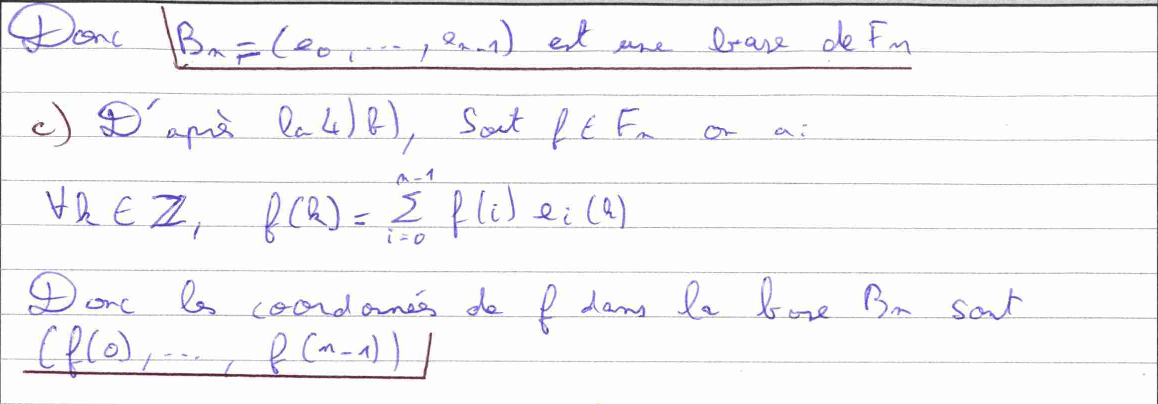 Donc B_n = (e_0, ..., e_{n-1}) est une base de F_n
c) D'après la 4) b), Soit f ∈ F_n on a :
∀k ∈ ℤ, f(k) = ∑_{i=0}^{n-1} f(i) e_i(k)
Donc les coordonnés de f dans la base B_n sont
(f(0), ..., f(n-1))